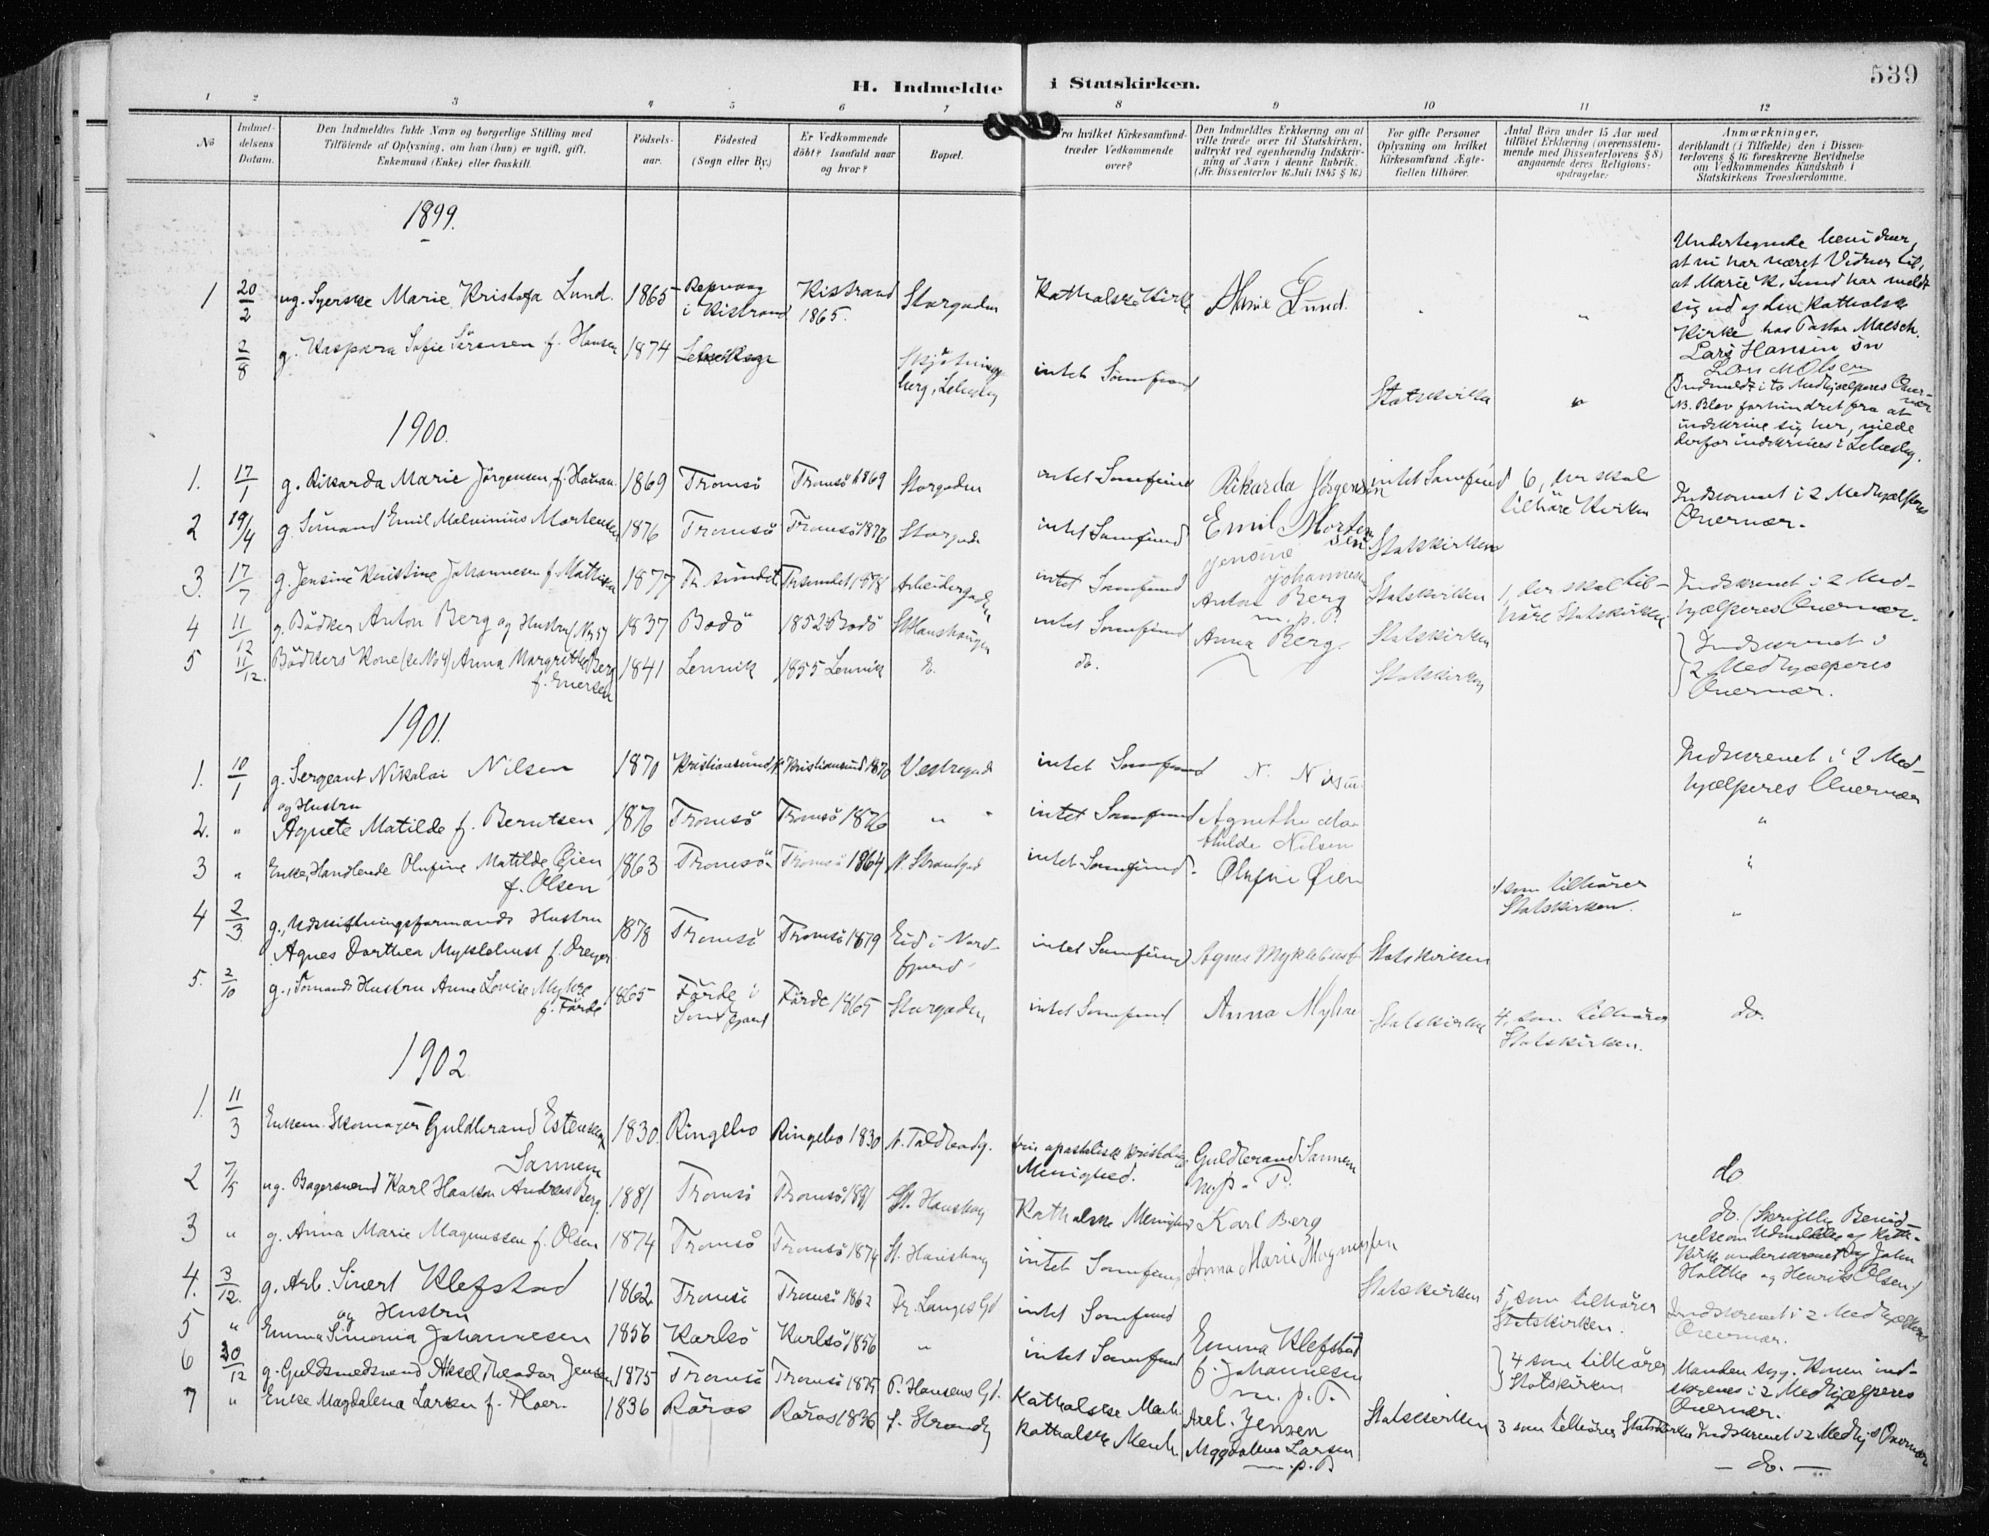 539
H. Indmeldte i Statskirken.
1 2 3 4 5 6 7 8 9 10 11 12
No
Indmeldelsens Datum.
Den Indmeldtes fulde Navn og borgerlige Stilling med
Tilföiende af Oplysning, om han (hun) er ugift, gift,
Enkemand (Enke) eller fraskilt.
Födselsaar.
Födested
(Sogn eller By.)
Er Vedkommende
döbt? Isaafald naar
og hvor?
Bopæl.
Fra hvilket Kirkesamfund
træder Vedkommende
over?
Den Indmeldtes Erklæring om at
ville træde over til Statskirken,
udtrykt ved egenhændig Indskrivning
af Navn i denne Rubrik.
(Jfr. Dissenterlov 16 Juli 1845 § 16.)
For gifte Personer
Oplysning om hvilket
Kirkesamfund Ægtefællen
tilhörer.
Antal Börn under 15 Aar med
tilföiet Erklæring (overensstemmende
med Dissenterlovens § 8)
angaaende deres Religionsopdragelse.
Anmærkninger,
deriblandt (i Tilfælde) den i Dissenterlovens
§ 16 foreskrevne Bevidnelse
om Vedkommendes Kundskab i
Statskirkens Troeslærdomme.
1899.
1 20/2 ug. Syerske Marie Kristofa Lund. 1865 Repvaag i Kistrand Kistrand 1865. Storgaden Katholske Kirke Marie Lund. " "
Undertegnede bevidner, at vi har været Vidner til, at Marie K. Lund har meldt sig ud af den Katholske Kirke hos Pastor
Lars Hansen
2/8 g. Kaspara Sofie Sörensen f. Hansen 1874 Lebesby intet Samfund Statskirken "
Indmeldt i to Medhjælperes Overvær
NB. Blev forhindret fra at indskrive sig her, derfor indskrives i Lebesby.
1900.
1. 17/1 g. Rikarda Marie Jörgensen f. 1869 Tromsö Tromsö 1869 Storgaden intet Samfund Rikarda Jörgensen intet Samfund 6, der skal tilhöre Kirken Indskrevet i 2 Medhjælperes Overvær.
2 19/4 g. Sömand Emil Malvinius Mortensen 1876 Tromsö Tromsö 1876 Storgaden intet Samfund Emil Mortensen Statskirken
3. 17/7 g. Jensine Kristine Johannesen f. 1877 Tr. sundet Tr.sundet 1878 Arbeidergaden intet Samfund Jensine Johannesen Statskirken 1, der skal tilhöre Statskirken Indskrevet i 2 Medhjælperes Overvær.
4 11/12 g. Bödker Anton Berg og Hustru 1837 Bodö 1852 Bodö St Hanshaugen intet Samfund Anton Berg m. p. P. Statskirken
5 11/12. Bödkers Kone (se No 4) Anna Margrithe Berg f. Enersen 1841 Lenvik 1855 Lenvik do. do. Anna Berg. Statskirken Indskrevet i 2 Medhjælperes Overvær.
1901.
1. 10/1 g. Sergeant Nikolai Nilsen 1870 Kristiansund Kristiansund 1870 Vestregade intet Samfund N. Nilsen Indskrevet i 2 Medhjælperes Overvær
og Hustru
2. " Agnete Matilde f. Berntsen 1876 Tromsö Tromsö 1876 " " intet Samfund Agnethe Mathilde Nilsen "
3 " Enke, Handlende Olufine Matilde Øien f. Olsen 1863 Tromsö Tromsö 1864 N. Strandgad intet Samfund. Olufine Øien 1 som tilhörer Statskirken. "
4 2/3 g., Udskiftningsformands Hustru Agnes Dorthea Myklebust f. Dreyer 1878 Tromsö Tromsö 1879 Eid i Nordfjord intet Samfund Agnes Myklebust Statskirken "
5. 2/10 g., Sömands Hustru Anna Lovise Myhre f. Förde 1865 Förde i Söndfjord Förde 1865 Storgaden intet Samfund Anna Myhre Statskirken 4, som tilhörer Statskirken. do.
1902
1. 11/3 Enkem. Skomager Guldbrand Estensen Sannem 1830 Ringebo Ringebo 1830 N. Toldbodg. fri apostolisk kristelig Menighed. Guldbrand Sannem m.p.P. do
2 7/5 ug. Bagersvend Karl Haakon Andreas Berg 1881 Tromsö Tromsö 1881 St. Hanshaug Katholske Menighed Karl Berg do. (Skriftlig Bevidnelse om Udmeldelse af Kath. Kirke underskrevet af John Holthe og Henrik Olsen.)
3 " g. Anna Marie Magnussen f. Olsen 1874 Tromsö Tromsö 1874 St. Hanshaug intet Samfund Anna Marie Magnussen Statskirken 5, som tilhörer Statskirken. Indskrevet i 2 Medhjælperes Overvær.
4. 3/12. g. Arb. Sivert Klefstad 1862 Tromsö Tromsö 1862 Fr. Langes Gd intet Samfund
og Hustru
5 " Emma Simonia Johannesen 1856 Karlsö Karlsö 1856 " intet Samfund Emma Klefstad f. Johannesen m. p. P. 4 som tilhörer Statskirken Manden syg. Konen indskrives i 2 Medhjælperes Overvær.
6 20/12 g. Guldsmedsvend Aksel Theodor Jensen 1875 Tromsö Tromsö 1875 P. Hansens Gd. Katholske Menh. Axel. Jensen Statskirken 3 som tilhörer Statskirken Indskrevet i 2 Medhj.s Overvær
7 " Enke Magdalena Larsen f. Floer. 1836 Röros Röros 1836 S. Strandg Katholske Menh. Magdalena Larsen m.p.P. — do. —